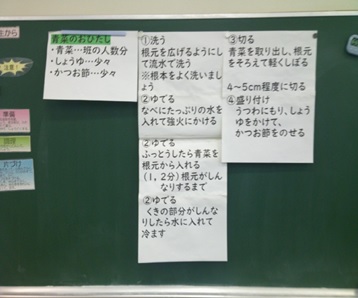 青菜のおひたし
・青菜…班の人数分
・しょうゆ…少々
・かつお節…少々
①洗う
根元を広げるようにし
て流水で洗う
※根本をよく洗いまし
ょう
②ゆでる
なべにたっぷりの水を
入れて強火にかける
②ゆでる
ふっとうしたら青菜を
根元から入れる
(1,2分)根元がしん
なりするまで
②ゆでる
くきの部分がしんな
りしたら水に入れて
冷ます
③切る
青菜を取り出し、根元
をそろえて軽くしぼる
4～5cm程度に切る
④盛り付け
うつわにもり、しょう
ゆをかけて、
かつお節をのせる